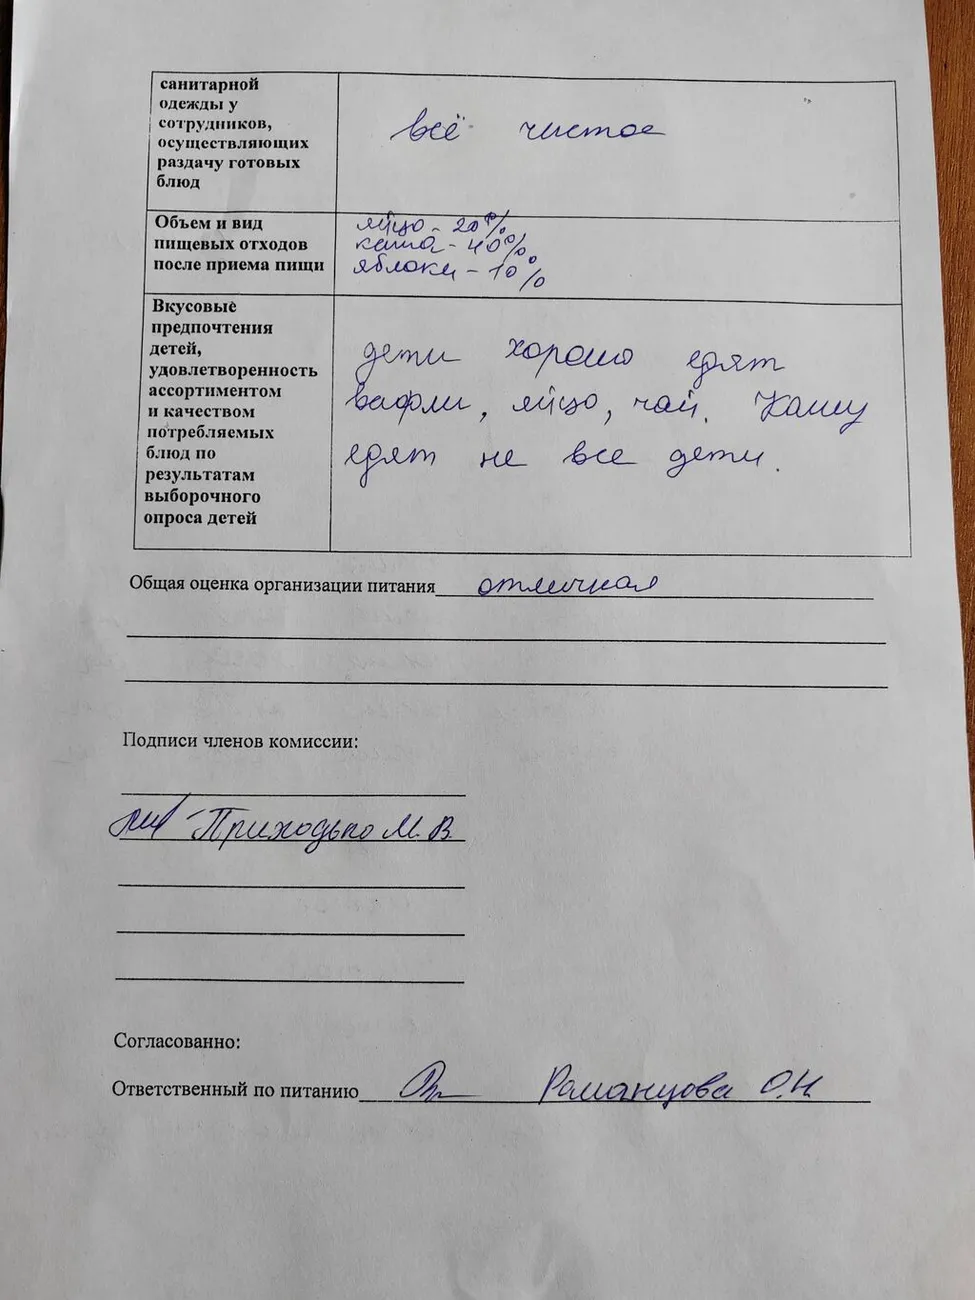 санитарной
одежды у
сотрудников,
осуществляющих
раздачу готовых
блюд
всё чистое
Объем и вид
пищевых отходов
после приема пищи
яйцо - 20%
каша - 40%
яблоки - 10%
Вкусовые
предпочтения
детей,
удовлетворенность
ассортиментом
и качеством
потребляемых
блюд по
результатам
выборочного
опроса детей
дети хорошо едят
вафли, яйцо, чай. Кашу
едят не все дети.
Общая оценка организации питания отличная
Подписи членов комиссии:
Приходько М.В.
Согласованно:
Ответственный по питанию Романцова О.Н.